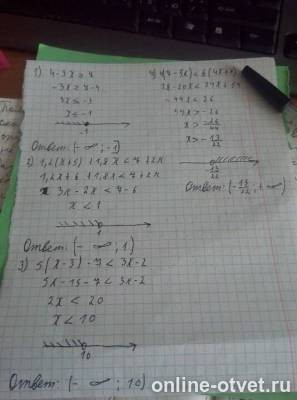 1). 4-3x ≥ 7
-3x ≥ 7-4
3x ≤ -3
x ≤ -1
-1
Ответ: (-∞; -1]
2) 1,2(x+5)+1,8x < 7+2x
1,2x+6+1,8x < 7+2x
3x-2x < 7-6
x < 1
1
Ответ: (-∞; 1)
3) 5(x-3)-7 < 3x-2
5x-15-7 < 3x-2
2x < 20
x < 10
10
Ответ: (-∞; 10)
28-20x < 24x+54
-44x < 26
44x > -26
x > -26/44
x > -13/22
13/22
Ответ: (-13/22; +∞)
online-otvet.ru